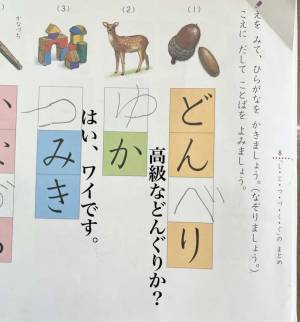 8
の まとめ
えを みて、ひらがなを かきましょう。（なぞりましょう。）
こえに だして ことばを よみましょう。
(1)
どんべり
高級などんぐりか？
(2)
ゆか
はい、ワイです。
(3)
つみき
かなづち